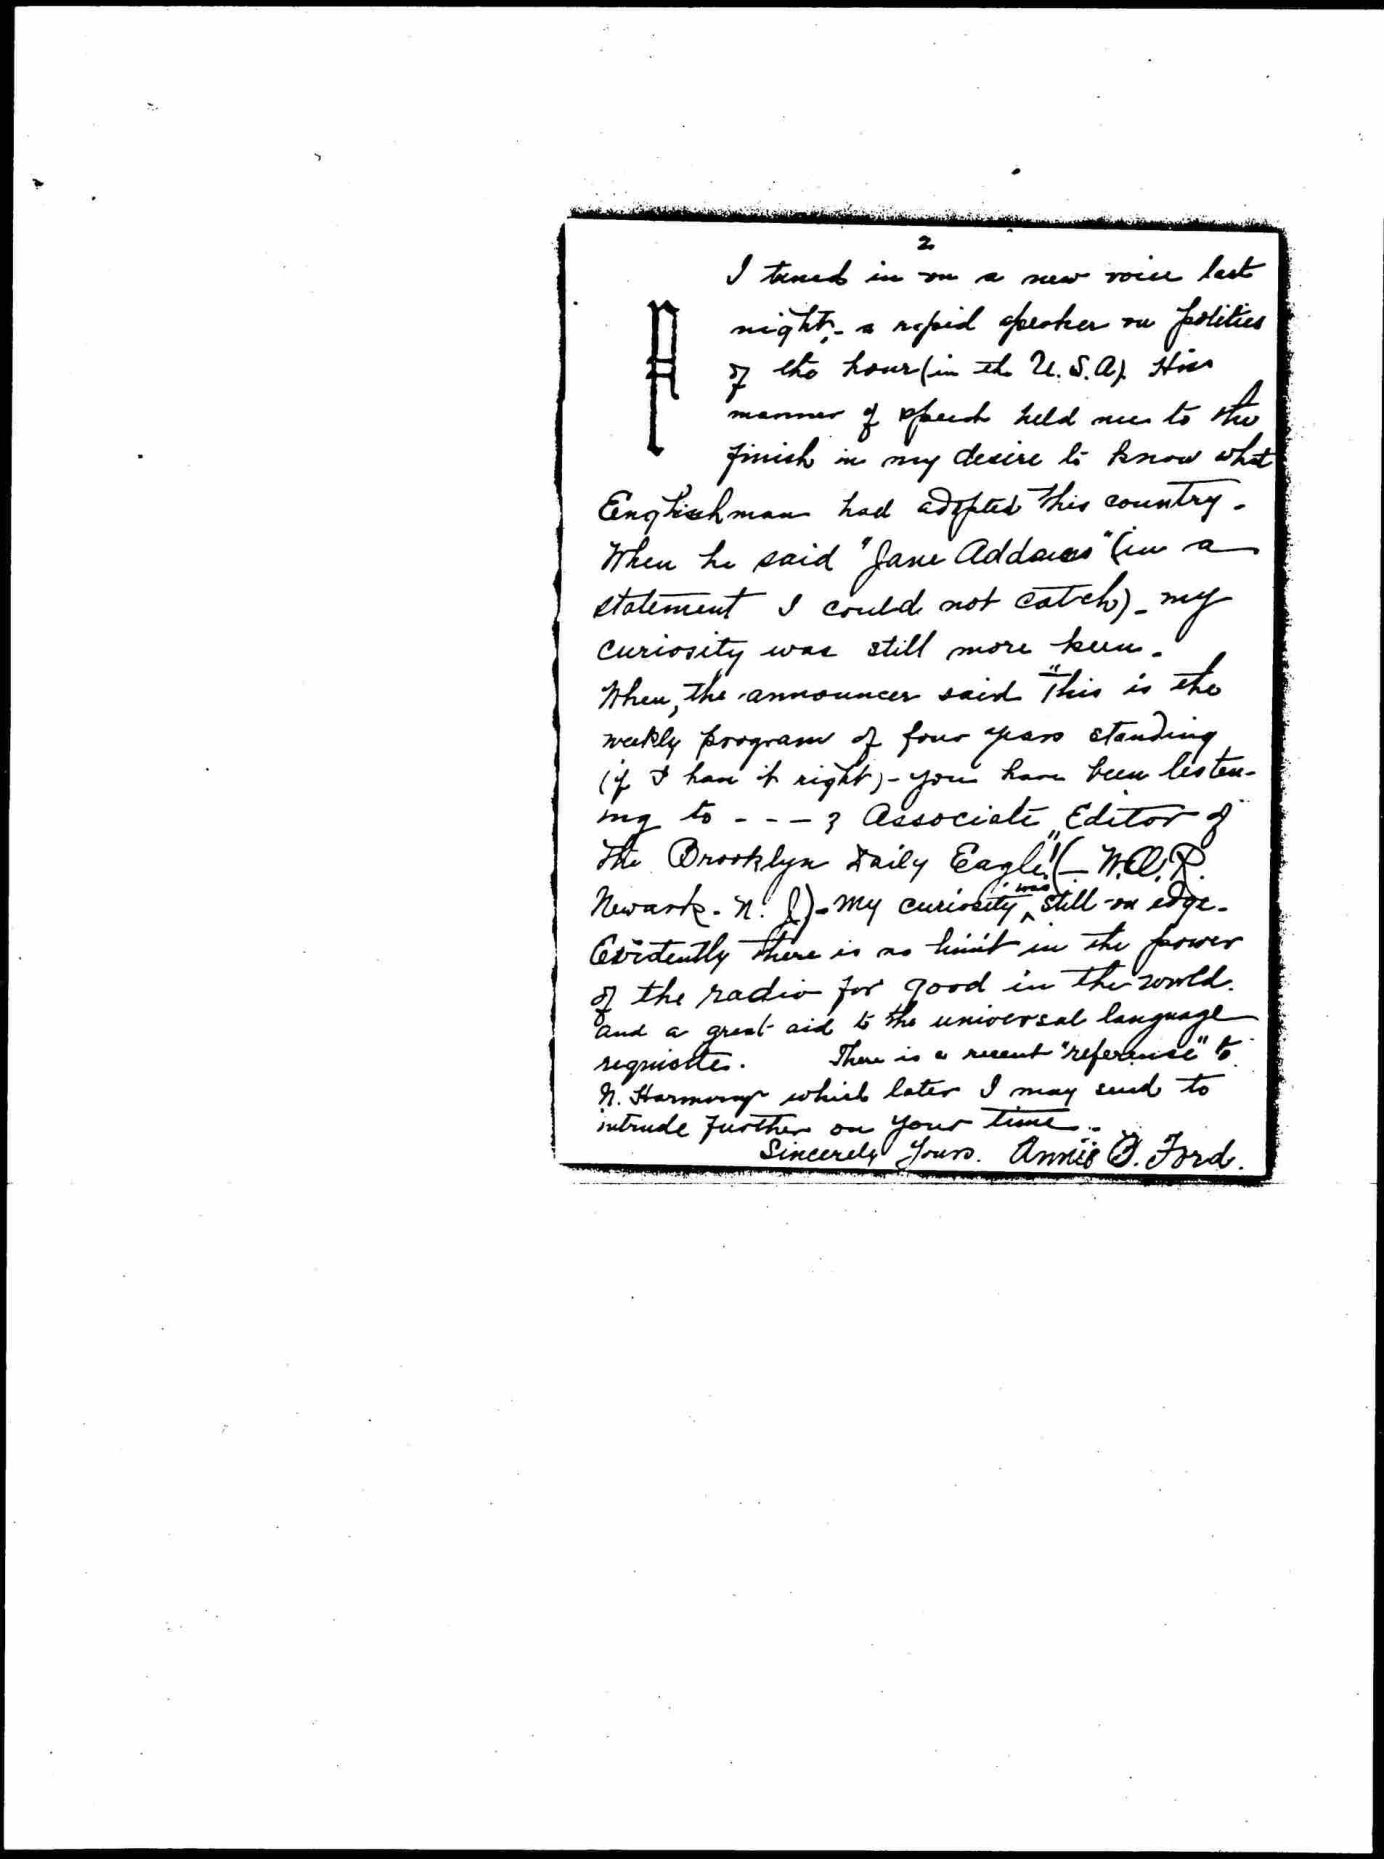 2
I tuned in on a new voice last
night,- a rapid speaker on politics
of the hour (in the U.S.A). His
manner of speech held me to the
finish in my desire to know what
Englishman had adopted this country.
When he said "Jane Addams" (in a
statement I could not catch) - my
curiosity was still more keen.
When, the announcer said "This is the
weekly program of four years standing
(if I have it right) - you have been listen-
ing to - - - ? Associate Editor of
the Brooklyn Daily Eagle" (- W.O.R.
Newark. N. J) - my curiosity was still on edge.
Evidently there is no limit in the power
of the radio for good in the world.
and a great aid to the universal language
requisite. There is a recent "reference" to
N. Harmony which later I may send to
intrude further on your time.
Sincerely Yours. Annie B. Ford.